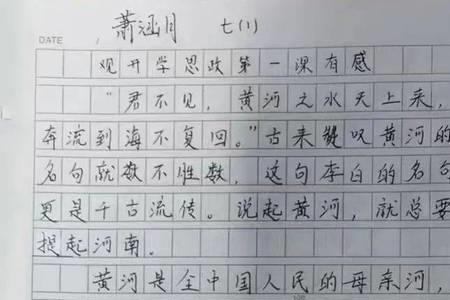 DATE 萧涵月 七(1)
观开学思政第一课有感
“君不见，黄河之水天上来，
奔流到海不复回。”古来叹黄河的
名句就数不胜数，这句李白的名句
更是千古流传。说起黄河，就总要
提起河南。
黄河是全中国人民的母亲河，